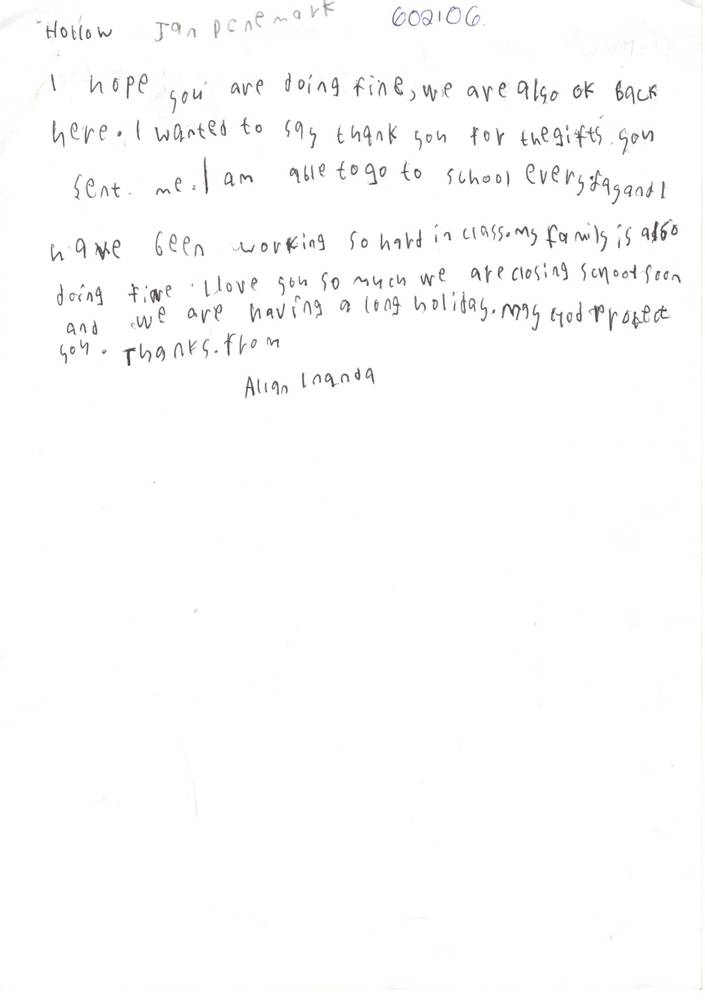 Hollow Jan Denemark 602106.
I hope you are doing fine, we are also ok back
here. I wanted to say thank you for the gifts you
sent. me. I am able to go to school every day and I
have been working so hard in class. my family is also
doing fine I love you so much we are closing school soon
and we are having a long holiday. may God protect
you. Thanks. from
Allan Inanda